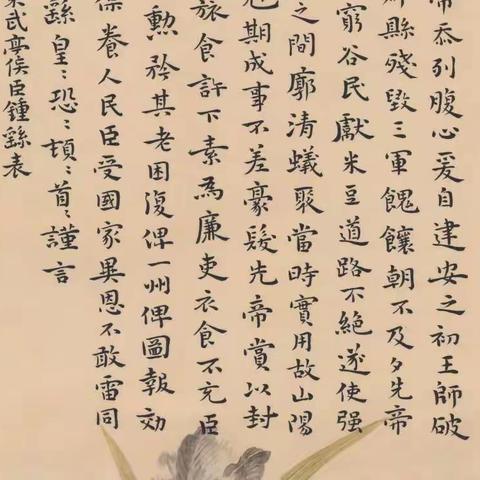 帝忝列腹心爰自建安之初王師破
縣殘毀三軍餽饟朝不及夕先帝
窮谷民獻米豆道路不絕遂使强
之間廓清蟻聚當時實用故山陽
剋期成事不差豪髮先帝賞以封
旅食許下素為廉吏衣食不充臣
勳矜其老困復俾一州俾圖報効
保養人民臣受國家異恩不敢雷同
繇皇〻恐〻頓〻首〻謹言
東武亭侯臣鍾繇表